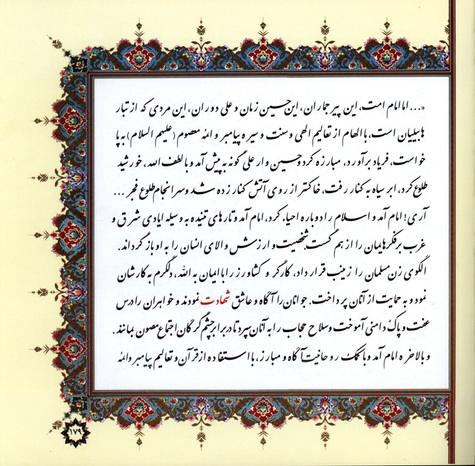 «... اما امام امت، این پیر جماران، این حسین زمان و علی دوران، این مردی که از تبار
هابیلیان است، با الهام از تعالیم الهی و سنت و سیره پیامبر و ائمه معصوم (علیهم السلام) به پا
خواست، فریاد برآورد، مبارزه کرد و حسین وار علی گونه به پیش آمد و با لطف الله، خورشید
طلوع کرد، ابر سیاه به کنار رفت، خاکستر از روی آتش کنار زده شد و سرانجام طلوع فجر ...
آری! امام آمد و اسلام را دوباره احیاء کرد، امام آمد و تارهای تنیده به وسیله ایادی شرق و
غرب بر فکرهایمان را از هم گسست شخصیت و ارزش والای انسان را به او باز گرداند.
الگوی زن مسلمان را زینب قرار داد، کارگر و کشاورز را با ایمان به الله، دلگرم به کارشان
نمود و به حمایت از آنان پرداخت. جوانان را آگاه و عاشق شهادت نمودند و خواهران را درس
عفت و پاک دامنی آموخت و سلاح حجاب را به آنان سپرد تا در برابر چشم گرگان اجتماع مصون بمانند.
و بالاخره امام آمد و با کمک روحانیت آگاه و مبارز، با استفاده از قرآن و تعالیم پیامبر و ائمه
۱۷۹